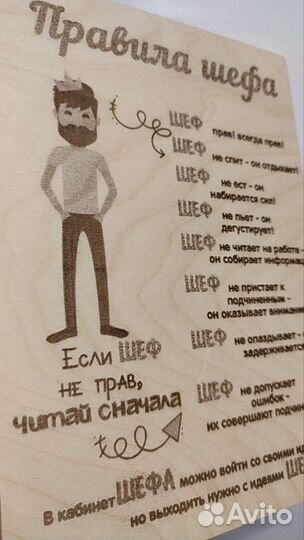 Правила шефа
ШЕФ прав! всегда прав!
ШЕФ не спит - он отдыхает!
ШЕФ не ест - он
набирается сил!
ШЕФ не пьет - он
дегустирует!
ШЕФ не читает на работе -
он собирает информац
ШЕФ не пристает к
подчиненным -
он оказывает внимани
ШЕФ не опаздывает -
задерживается
ШЕФ не допускает
ошибок -
их совершают подчин
Если ШЕФ
не прав,
читай сначала
В кабинет ШЕФА можно войти со своими ид
но выходить нужно с идеями ШЕ
Avito